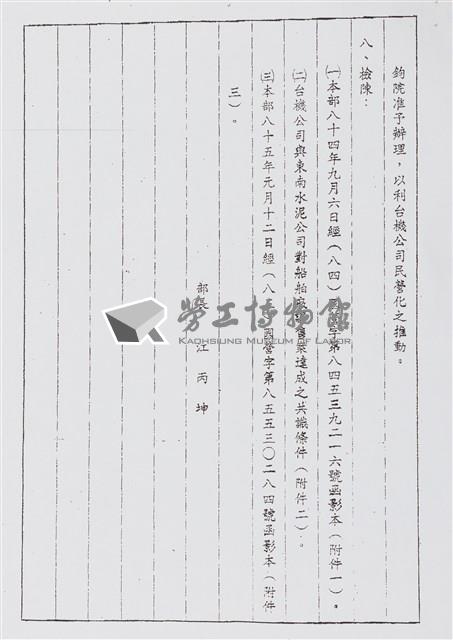 鈞院准予辦理，以利台機公司民營化之推動。
八、檢陳：
㈠本部八十四年九月六日經(八四)國營字第八四五三九二一六號函影本(附件一)。
㈡台機公司與東南水泥公司對船舶廠 售案達成之共識條件(附件二)。
㈢本部八十五年元月十二日經(八 國營字第八五五三〇二八四號函影本(附件
三)。
部長 江丙坤
勞工博物館
KAOHSIUNG MUSEUM OF LABOR